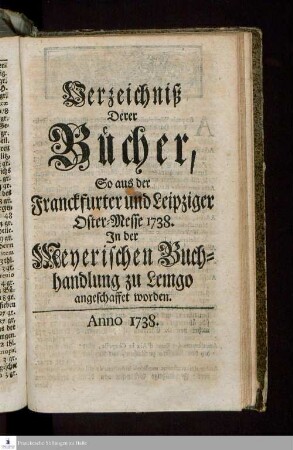 Verzeichniß
Derer
Bücher,
So aus der
Franckfurter und Leipziger
Oster-Messe 1738.
In der
Meyerischen Buch-
handlung zu Lemgo
angeschaffet worden.
Anno 1738.
Franckesche Stiftungen zu Halle